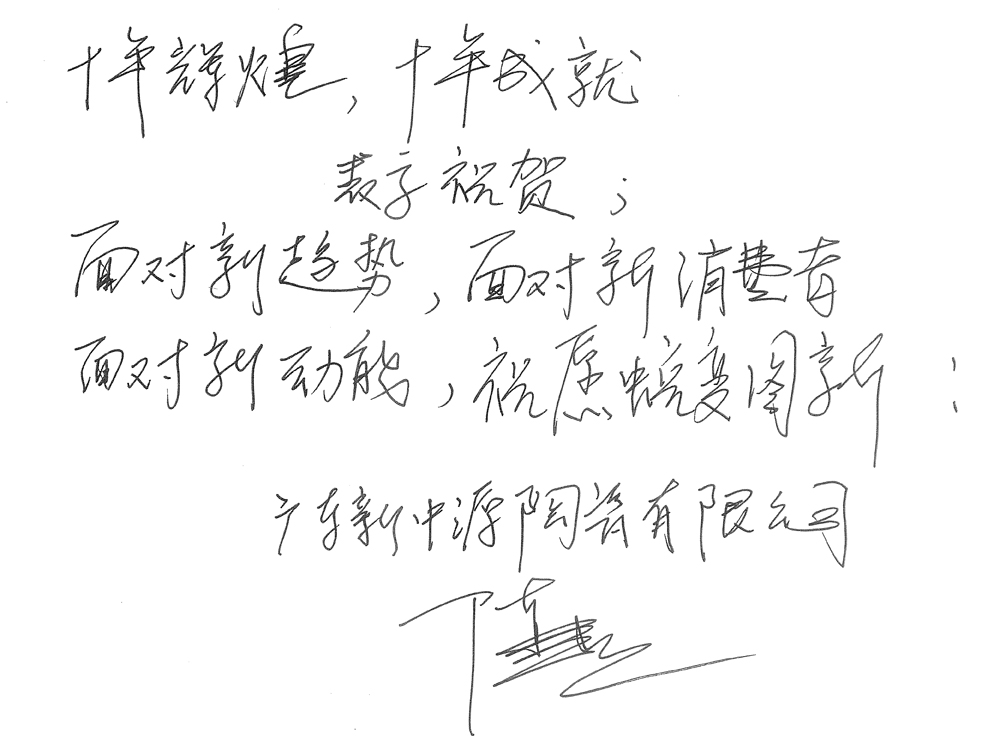 十年辉煌，十年成就
表示祝贺；
面对新趋势，面对新消费者
面对新动能，祝愿蜕变图新：
广东新中源陶瓷有限公司